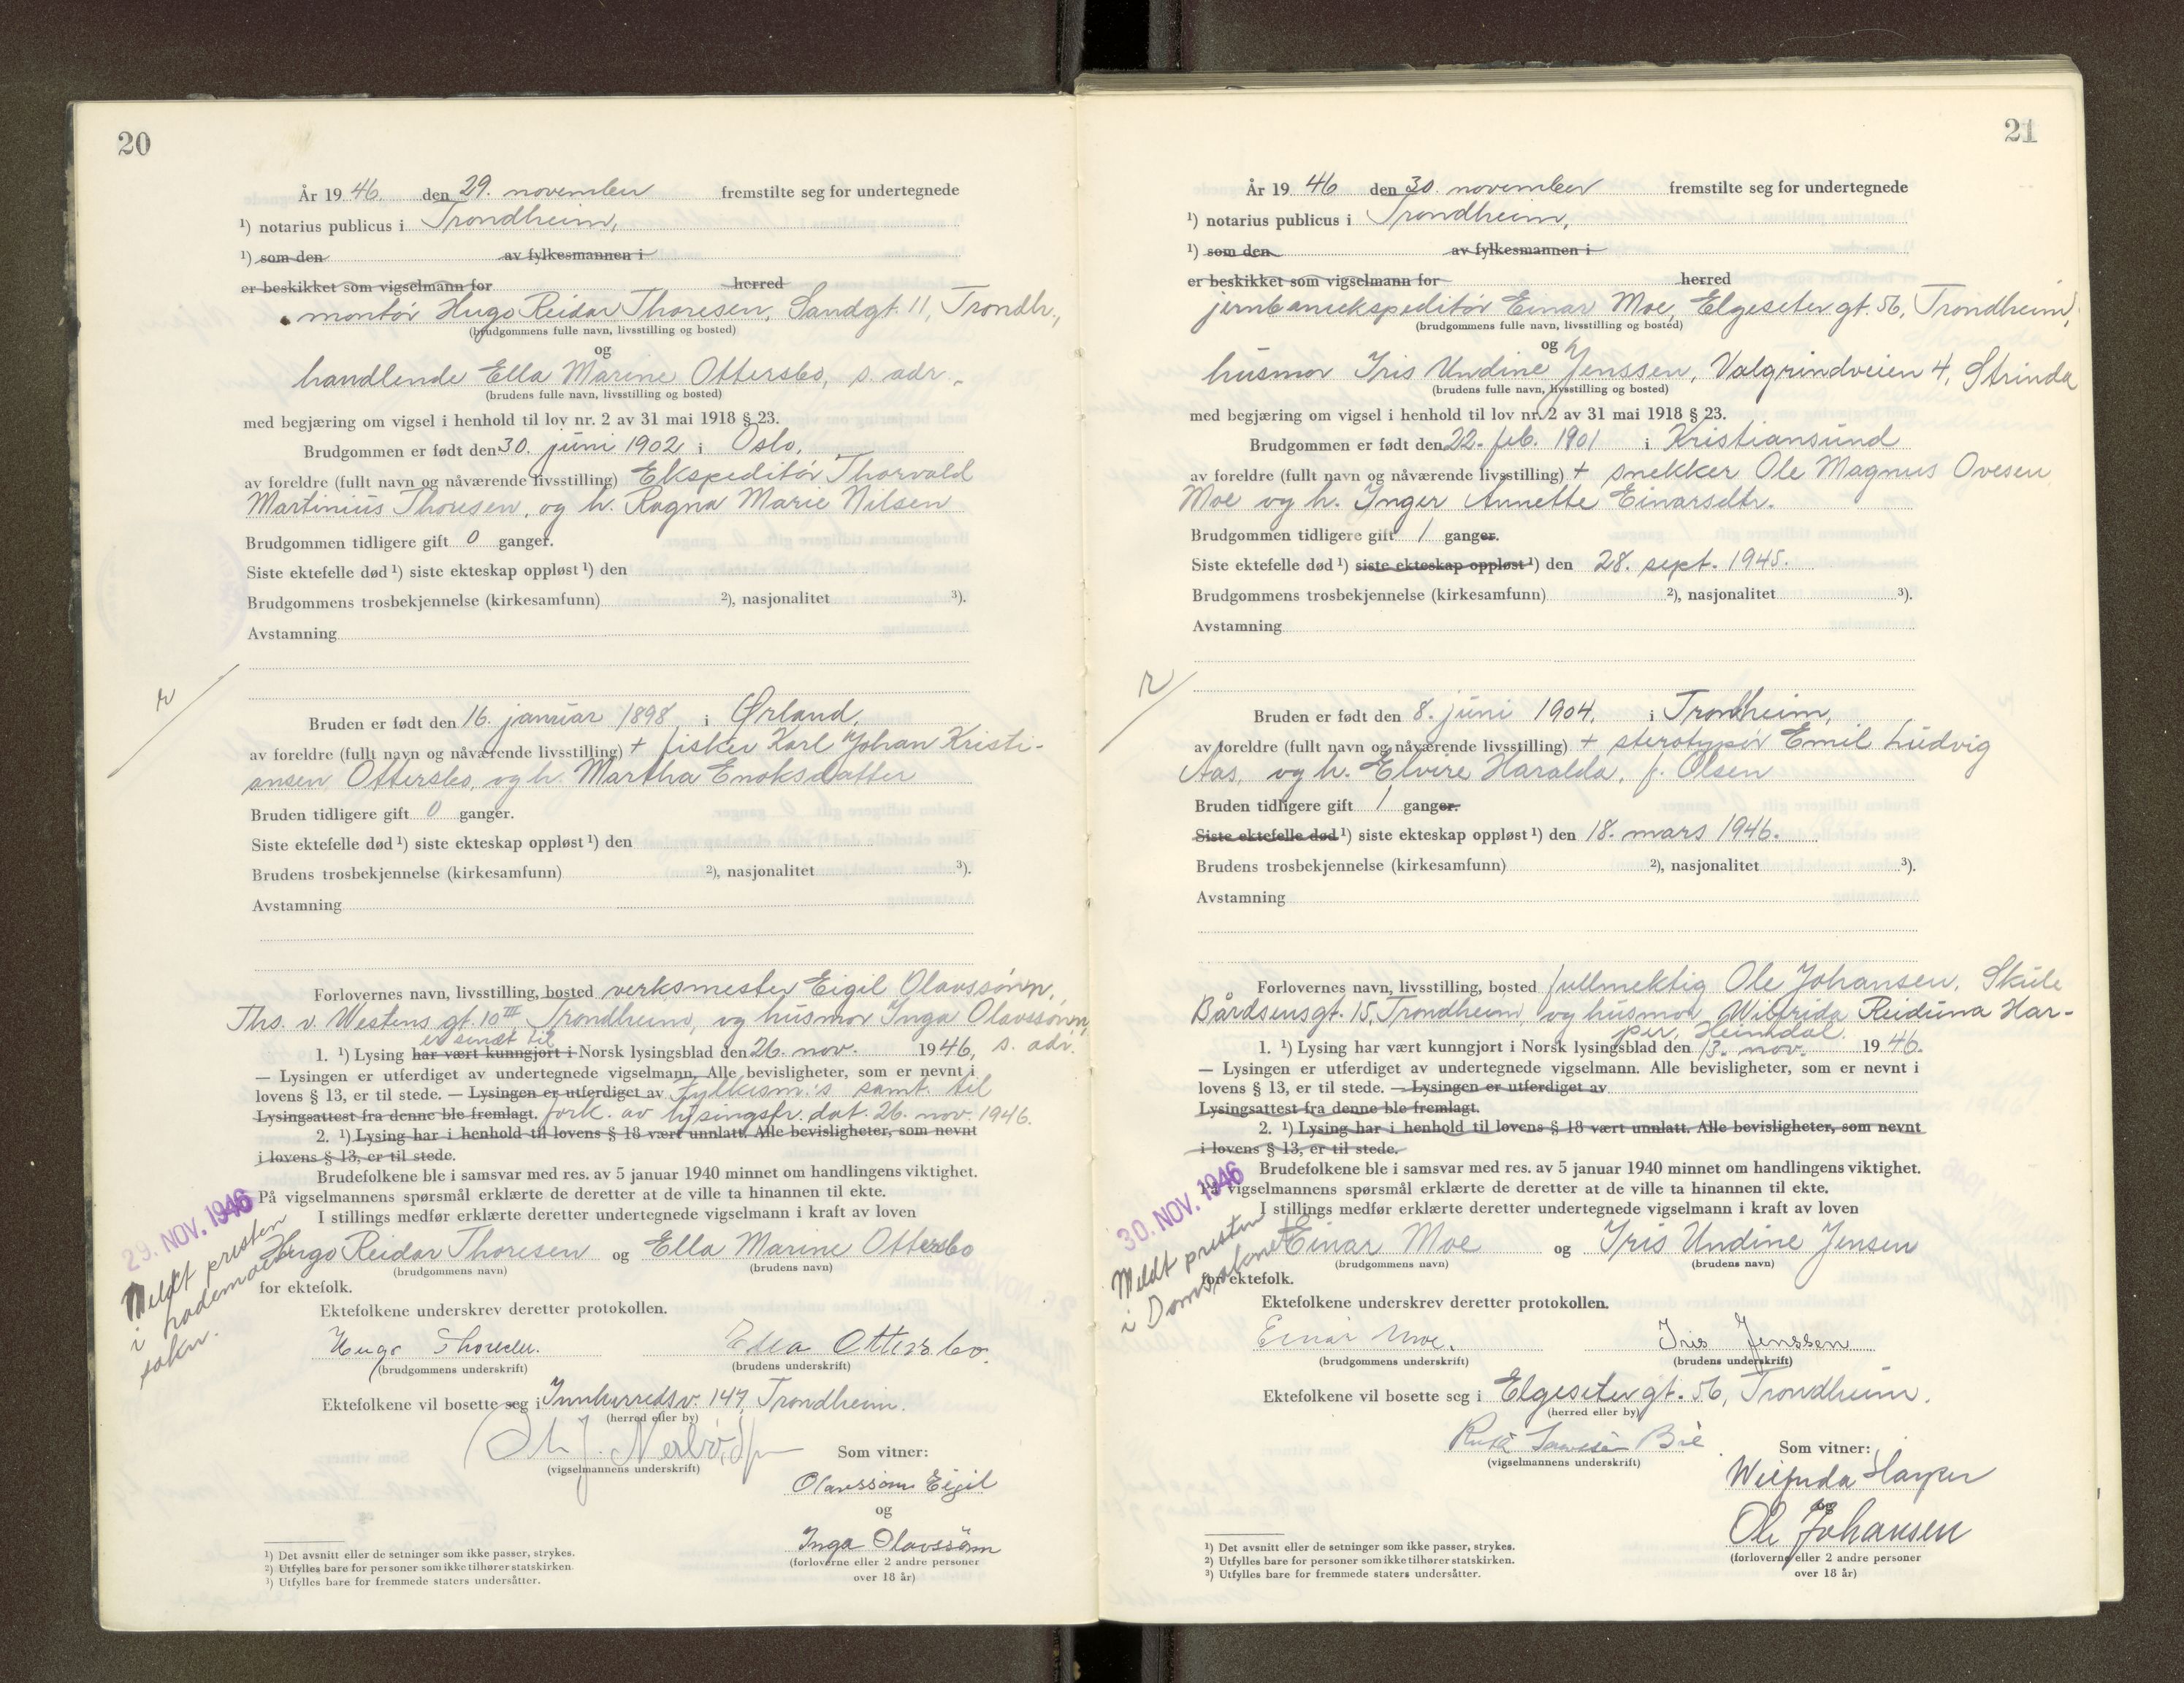 20
År 1946. den 29. november fremstilte seg for undertegnede
¹) notarius publicus i Trondheim,
¹) som den av fylkesmannen i
er beskikket som vigselmann for herred
montør Hugo Reidar Thoresen, Sandgt. 11, Trondh.,
(brudgommens fulle navn, livsstilling og bosted)
og
handlende Ella Marine Ottersbo, s. adr.,
(brudens fulle navn, livsstilling og bosted)
med begjæring om vigsel i henhold til lov nr. 2 av 31 mai 1918 § 23.
Brudgommen er født den 30. juni 1902 i Oslo.
av foreldre (fullt navn og nåværende livsstilling) Ekspeditør Thorvald
Martinius Thoresen, og h. Ragna Marie Nilsen
Brudgommen tidligere gift 0 ganger.
Siste ektefelle død ¹) siste ekteskap oppløst ¹) den
Brudgommens trosbekjennelse (kirkesamfunn) ²), nasjonalitet ³).
Avstamning
Bruden er født den 16. januar 1898 i Ørland.
av foreldre (fullt navn og nåværende livsstilling) + fisker Karl Johan Kristi-
ansen Ottersbo, og h. Martha Enoksdatter
Bruden tidligere gift 0 ganger.
Siste ektefelle død ¹) siste ekteskap oppløst ¹) den
Brudens trosbekjennelse (kirkesamfunn) ²), nasjonalitet ³).
Avstamning
Forlovernes navn, livsstilling, bosted verksmester Eigil Olavssönn,
Ths. v. Westens gt. 10 III, Trondheim, og husmor Inga Olavssönn,
er sendt til
1. ¹) Lysing har vært kunngjort i Norsk lysingsblad den 26. nov. 1946, s. adr.
— Lysingen er utferdiget av undertegnede vigselmann. Alle bevisligheter, som er nevnt i
lovens § 13, er til stede. — Lysingen er utferdiget av Fylkesm:s samt. til
Lysingsattest fra denne ble fremlagt. fork. av lysingsfr. dat. 26. nov. 1946.
2. ¹) Lysing har i henhold til lovens § 18 vært unnlatt. Alle bevisligheter, som nevnt
i lovens § 13, er til stede.
Brudefolkene ble i samsvar med res. av 5 januar 1940 minnet om handlingens viktighet.
På vigselmannens spørsmål erklærte de deretter at de ville ta hinannen til ekte.
I stillings medfør erklærte deretter undertegnede vigselmann i kraft av loven
29. NOV. 1946
Meldt presten
i Lademoen
sokn.
Hugo Reidar Thoresen og Ella Marine Ottersbo
(brudgommens navn) (brudens navn)
for ektefolk.
Ektefolkene underskrev deretter protokollen.
Hugo Thoresen. Ella Ottersbo.
(brudgommens underskrift) (brudens underskrift)
Ektefolkene vil bosette seg i Innherredsv. 147, Trondheim.
(herred eller by)
(vigselmannens underskrift)
Som vitner:
Olavssönn Eigil
og
Inga Olavssönn
(forloverne eller 2 andre personer
over 18 år)
¹) Det avsnitt eller de setninger som ikke passer, strykes.
²) Utfylles bare for personer som ikke tilhører statskirken.
³) Utfylles bare for fremmede staters undersåtter.
21
År 1946 den 30. november fremstilte seg for undertegnede
¹) notarius publicus i Trondheim,
¹) som den av fylkesmannen i
er beskikket som vigselmann for herred
jernbaneekspeditör Einar Moe, Elgeseter gt. 56, Trondheim,
(brudgommens fulle navn, livsstilling og bosted)
og
husmor Iris Undine Jenssen, Valgrindveien 4, Strinda
(brudens fulle navn, livsstilling og bosted)
med begjæring om vigsel i henhold til lov nr. 2 av 31 mai 1918 § 23.
Brudgommen er født den 22. feb. 1901 i Kristiansund
av foreldre (fullt navn og nåværende livsstilling) + snekker Ole Magnus Ovesen
Moe og h. Inger Annette Einarsdtr.
Brudgommen tidligere gift 1 ganger.
Siste ektefelle død ¹) siste ekteskap oppløst ¹) den 28. sept. 1945.
Brudgommens trosbekjennelse (kirkesamfunn) ²), nasjonalitet ³).
Avstamning
Bruden er født den 8. juni 1904. i Trondheim,
av foreldre (fullt navn og nåværende livsstilling) + sterotypör Emil Ludvig
Aas, og h. Elvire Haralda, f. Olsen
Bruden tidligere gift 1 ganger.
Siste ektefelle død ¹) siste ekteskap oppløst ¹) den 18. mars 1946.
Brudens trosbekjennelse (kirkesamfunn) ²), nasjonalitet ³).
Avstamning
Forlovernes navn, livsstilling, bosted fullmektig Ole Johansen, Skule
Bårdsensgt. 15, Trondheim, og husmor Wilfrida Reiduna Har-
per, Heimdal.
1. ¹) Lysing har vært kunngjort i Norsk lysingsblad den 13. nov. 1946.
— Lysingen er utferdiget av undertegnede vigselmann. Alle bevisligheter, som er nevnt i
lovens § 13, er til stede. — Lysingen er utferdiget av
Lysingsattest fra denne ble fremlagt.
2. ¹) Lysing har i henhold til lovens § 18 vært unnlatt. Alle bevisligheter, som nevnt
i lovens § 13, er til stede.
Brudefolkene ble i samsvar med res. av 5 januar 1940 minnet om handlingens viktighet.
På vigselmannens spørsmål erklærte de deretter at de ville ta hinannen til ekte.
I stillings medfør erklærte deretter undertegnede vigselmann i kraft av loven
30. NOV. 1946
Meldt presten
i Domsoknet
Einar Moe og Iris Undine Jensen
(brudgommens navn) (brudens navn)
for ektefolk.
Ektefolkene underskrev deretter protokollen.
Einar Moe. Iris Jenssen
(brudgommens underskrift) (brudens underskrift)
Ektefolkene vil bosette seg i Elgeseter gt. 56, Trondheim.
(herred eller by)
(vigselmannens underskrift)
Som vitner:
Wilfrida Harper
og
Ole Johansen
(forloverne eller 2 andre personer
over 18 år)
¹) Det avsnitt eller de setninger som ikke passer, strykes.
²) Utfylles bare for personer som ikke tilhører statskirken.
³) Utfylles bare for fremmede staters undersåtter.